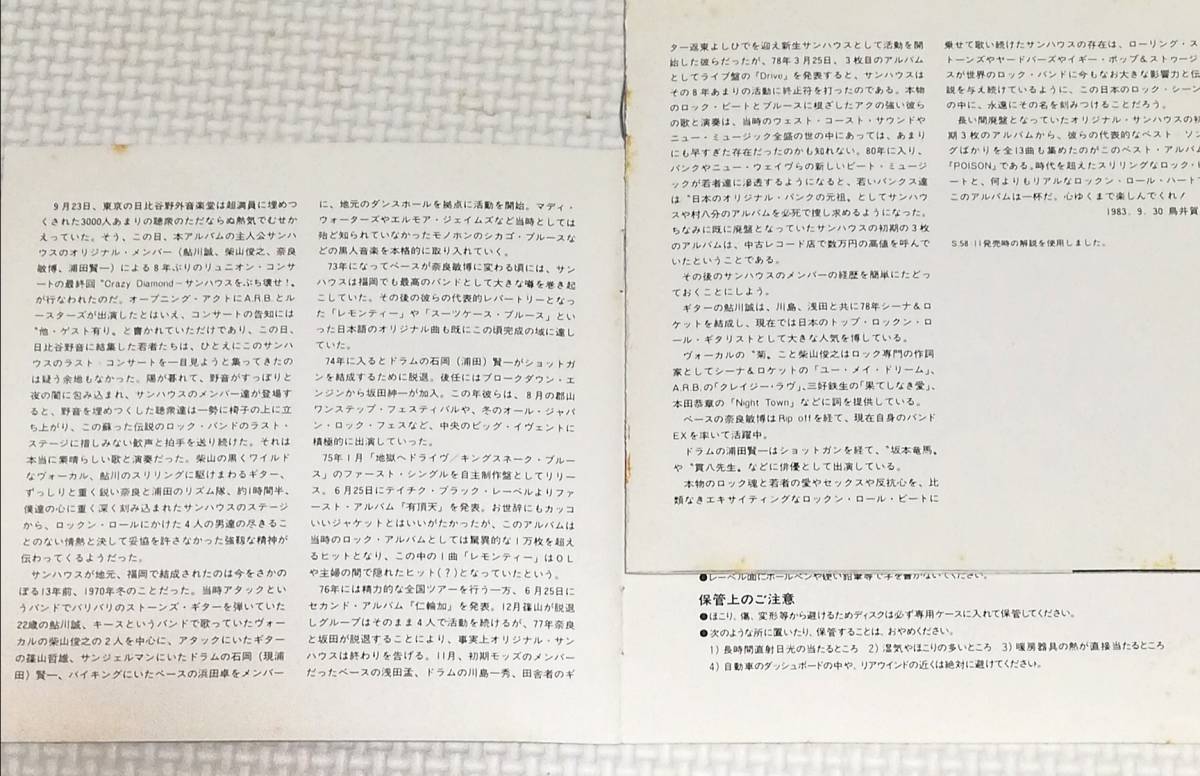 9月23日、東京の日比谷野外音楽堂は超満員に埋めつ
くされた3000人あまりの聴衆のただならぬ熱気でむせか
えっていた。そう、この日、本アルバムの主人公サンハ
ウスのオリジナル・メンバー（鮎川誠、柴山俊之、奈良
敏博、浦田賢一）による8年ぶりのリュニオン・コンサ
ートの最終回〝Crazy Diamond－サンハウスをぶち壊せ！〟
が行なわれたのだ。オープニング・アクトにA.R.B.とル
ースターズが出演したとはいえ、コンサートの告知には
〝他・ゲスト有り〟と書かれていただけであり、この日、
日比谷野音に結集した若者たちは、ひとえにこのサンハ
ウスのラスト・コンサートを一目見ようと集ってきたの
は疑う余地もなかった。陽が暮れて、野音がすっぽりと
夜の闇に包み込まれ、サンハウスのメンバー達が登場す
ると、野音を埋めつくした聴衆達は一勢に椅子の上に立
ち上がり、この蘇った伝説のロック・バンドのラスト・
ステージに惜しみない歓声と拍手を送り続けた。それは
本当に素晴らしい歌と演奏だった。柴山の黒くワイルド
なヴォーカル、鮎川のスリリングに駆けまわるギター、
ずっしりと重く鋭い奈良と浦田のリズム隊、約1時間半、
僕達の心に重く深く刻み込まれたサンハウスのステージ
から、ロックン・ロールにかけた4人の男達の尽きるこ
とのない情熱と決して妥協を許さなかった強靱な精神が
伝わってくるようだった。
サンハウスが地元、福岡で結成されたのは今をさかの
ぼる13年前、1970年冬のことだった。当時アタックと
いうバンドでバリバリのストーンズ・ギターを弾いていた
22歳の鮎川誠、キースというバンドで歌っていたヴォー
カルの柴山俊之の2人を中心に、アタックにいたギター
の篠山哲雄、サンジェルマンにいたドラムの石岡（現浦
田）賢一、バイキングにいたベースの浜田卓をメンバー
に、地元のダンスホールを拠点に活動を開始。マディ・
ウォーターズやエルモア・ジェイムズなど当時としては
殆ど知られていなかったモノホンのシカゴ・ブルースな
どの黒人音楽を本格的に取り入れていく。
73年になってベースが奈良敏博に変わる頃には、サン
ハウスは福岡でも最高のバンドとして大きな噂を巻き起
こしていた。その後の彼らの代表的レパートリーとなっ
た「レモンティー」や「スーツケース・ブルース」といっ
た日本語のオリジナル曲も既にこの頃完成の域に達し
ていた。
74年に入るとドラムの石岡（浦田）賢一がショットガ
ンを結成するために脱退。後任にはブロークダウン・エ
ンジンから坂田紳一が加入。この年彼らは、8月の郡山
ワンステップ・フェスティバルや、冬のオール・ジャパ
ン・ロック・フェスなど、中央のビッグ・イヴェントに
積極的に出演していった。
75年1月「地獄へドライヴ／キングスネーク・ブルー
ス」のファースト・シングルを自主制作盤としてリリー
ス。6月25日にテイチク・ブラック・レーベルよりファ
ースト・アルバム「有頂天」を発表。お世辞にもカッコ
いいジャケットとはいいがたかったが、このアルバムは
当時のロック・アルバムとしては驚異的な1万枚を超え
るヒットとなり、この中の1曲「レモンティー」はOL
や主婦の間で隠れたヒット(？)となっていたという。
76年には精力的な全国ツアーを行う一方、6月25日に
セカンド・アルバム「仁輪加」を発表。12月篠山が脱退
しグループはそのまま4人で活動を続けるが、77年奈良
と坂田が脱退することにより、事実上オリジナル・サン
ハウスは終わりを告げる。11月、初期モッズのメンバー
だったベースの浅田孟、ドラムの川島一秀、田舎者のギ
ター坂東よしひでを迎え新生サンハウスとして活動を開
始した彼らだったが、78年3月25日、3枚目のアルバム
としてライブ盤の「Drive」を発表すると、サンハウスは
その8年あまりの活動に終止符を打ったのである。本物
のロック・ビートとブルースに根ざしたアクの強い彼ら
の歌と演奏は、当時のウェスト・コースト・サウンドや
ニュー・ミュージック全盛の世の中にあっては、あまり
にも早すぎた存在だったのかも知れない。80年に入り、
パンクやニュー・ウェイヴらの新しいビート・ミュージ
ックが若者達に滲透するようになると、若いパンクス達
は〝日本のオリジナル・パンクの元祖〟としてサンハウ
スや村八分のアルバムを必死で捜し求めるようになった。
ちなみに既に廃盤となっていたサンハウスの初期の3枚
のアルバムは、中古レコード店で数万円の高値を呼んで
いたということである。
その後のサンハウスのメンバーの経歴を簡単にたどっ
ておくことにしよう。
ギターの鮎川誠は、川島、浅田と共に78年シーナ＆ロ
ケットを結成し、現在では日本のトップ・ロックン・ロ
ール・ギタリストとして大きな人気を博している。
ヴォーカルの〝菊〟こと柴山俊之はロック専門の作詞
家としてシーナ＆ロケットの「ユー・メイ・ドリーム」、
A.R.B.の「クレイジー・ラヴ」、三好鉄生の「果てしなき愛」、
本田恭章の「Night Town」などに詞を提供している。
ベースの奈良敏博はRip offを経て、現在自身のバンド
EXを率いて活躍中。
ドラムの浦田賢一はショットガンを経て、〝坂本竜馬〟
や〝貫八先生〟などに俳優として出演している。
本物のロック魂と若者の愛やセックスや反抗心を、比
類なきエキサイティングなロックン・ロール・ビートに
乗せて歌い続けたサンハウスの存在は、ローリング・ス
トーンズやヤードバーズやイギー・ポップ＆ストゥージ
スが世界のロック・バンドに今もなお大きな影響力と伝
説を与え続けているように、この日本のロック・シーン
の中に、永遠にその名を刻みつけることだろう。
長い間廃盤となっていたオリジナル・サンハウスの初
期3枚のアルバムから、彼らの代表的なベスト・ソ
グばかりを全13曲も集めたのがこのベスト・アルバム
「POISON」である。時代を超えたスリリングなロック・
ートと、何よりもリアルなロックン・ロール・ハートで
このアルバムは一杯だ。心ゆくまで楽しんでくれ！
1983. 9. 30 鳥井賀
S.58·11発売時の解説を使用しました。
●レーベル面にボールペンや硬い鉛筆等で字を書かないでください。
保管上のご注意
●ほこり、傷、変形等から避けるためディスクは必ず専用ケースに入れて保管してください。
●次のような所に置いたり、保管することは、おやめください。
1) 長時間直射日光の当たるところ 2) 湿気やほこりの多いところ 3) 暖房器具の熱が直接当たるところ
4) 自動車のダッシュボードの中や、リアウインドの近くは絶対に避けてください。